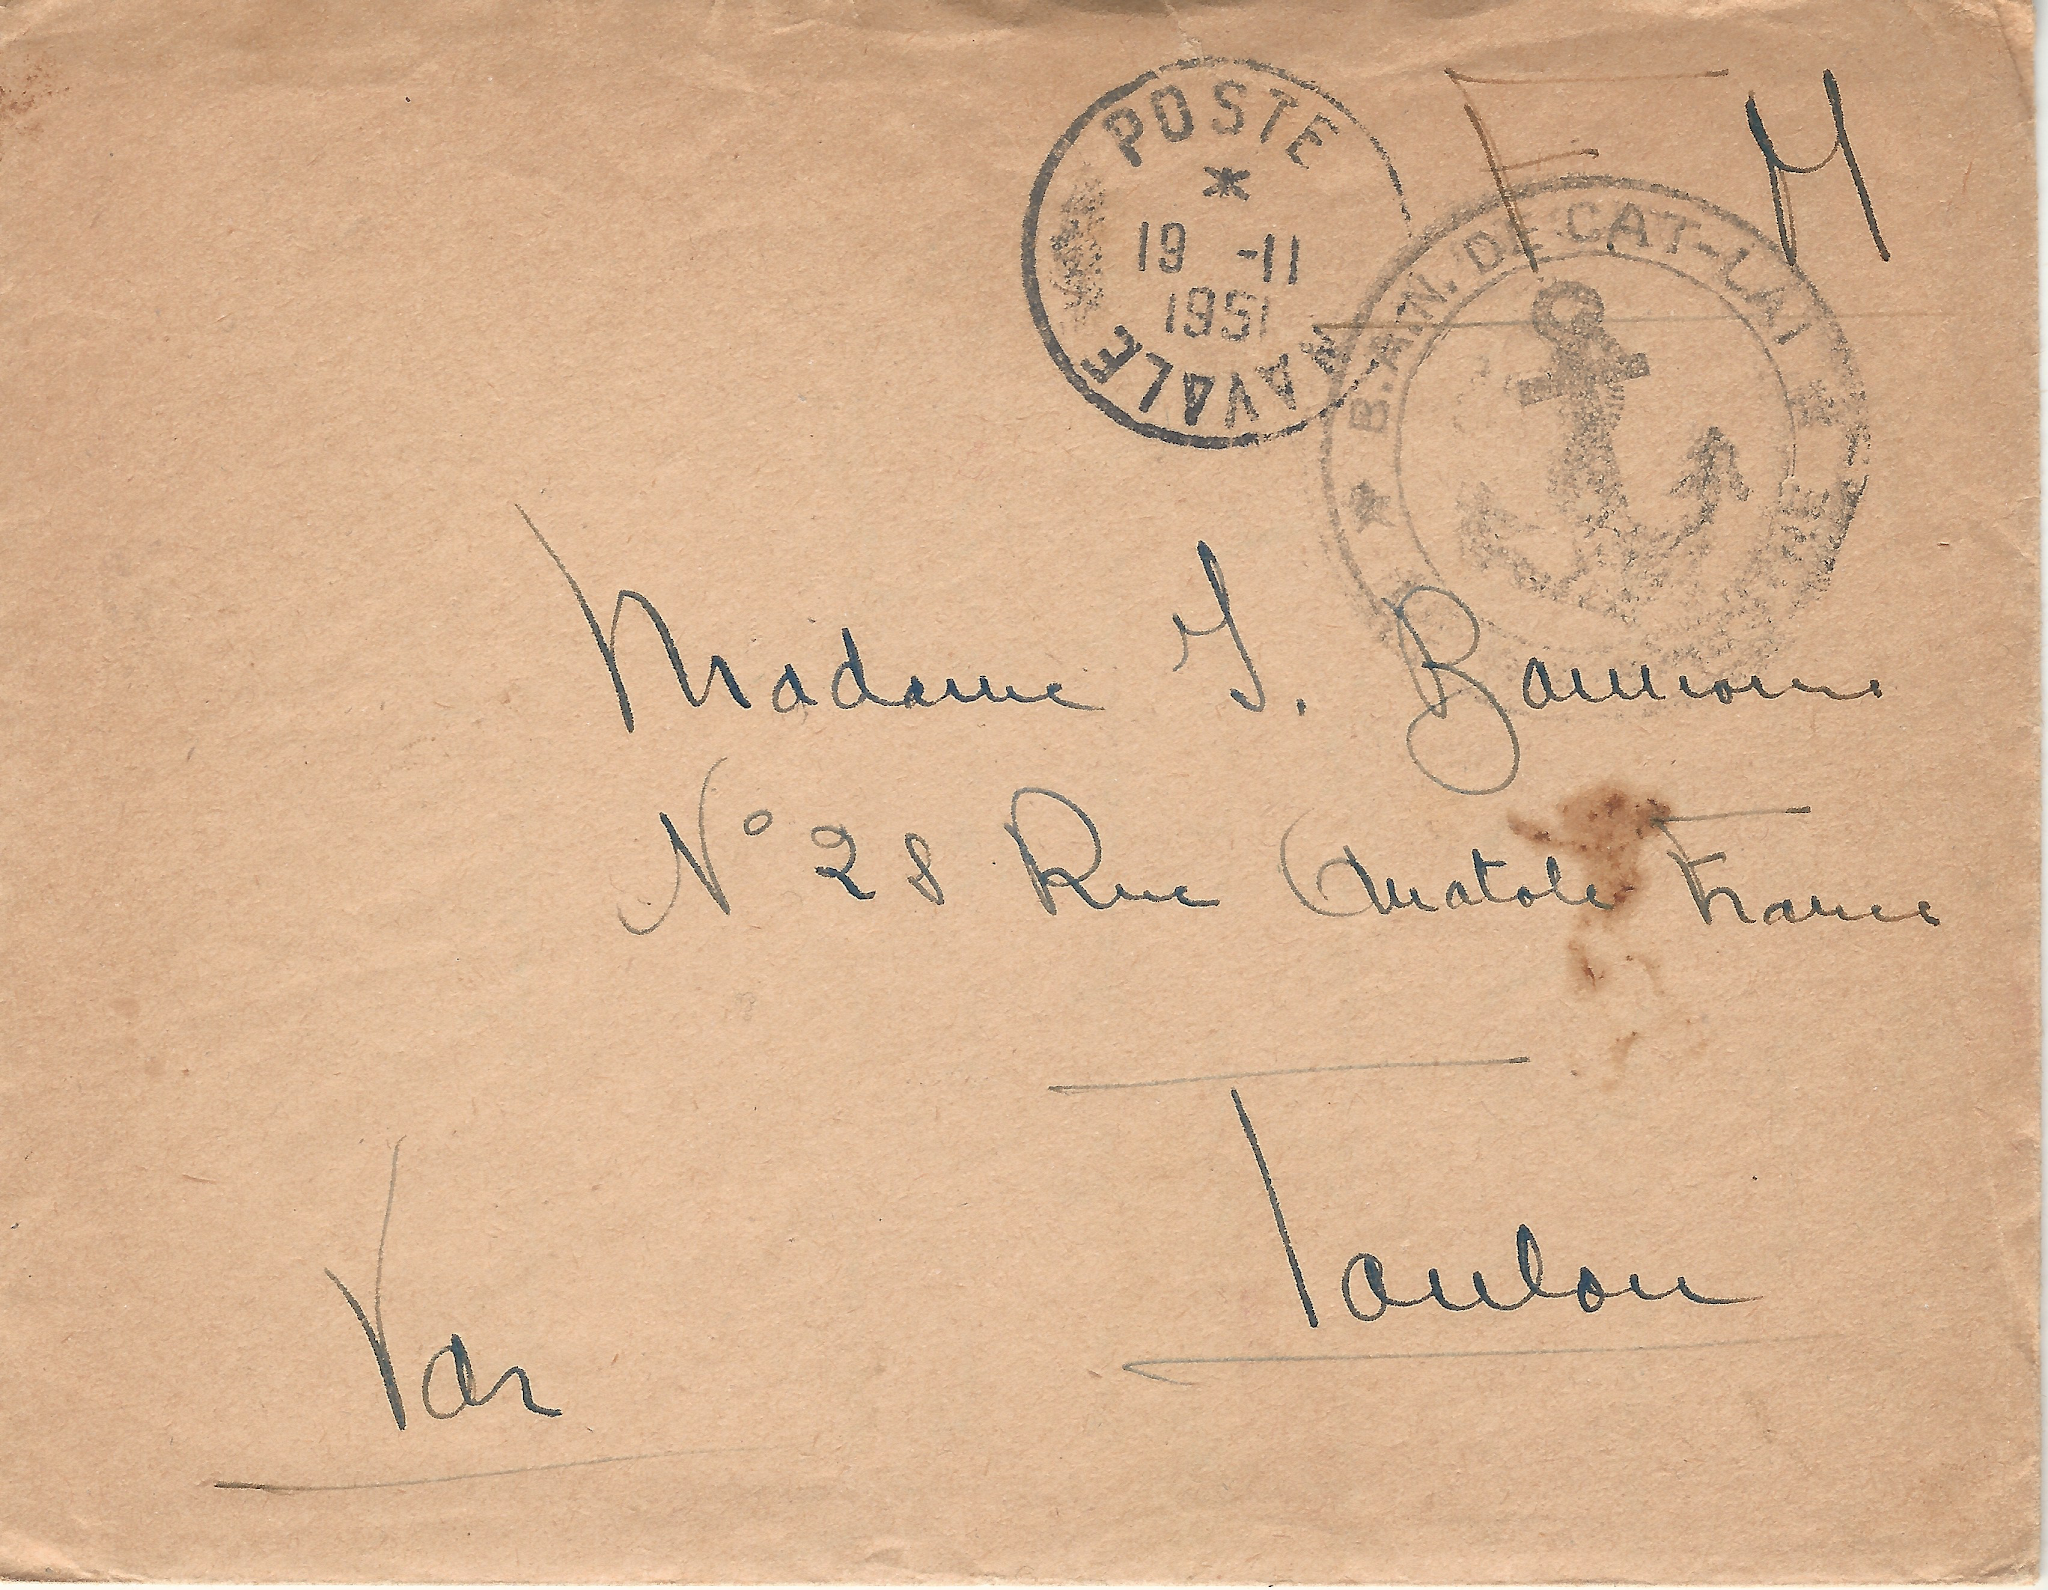 F M
POSTE
19 -11
1951
NAVALE
DE CAT-LAI
Madame
N° 28 Rue Anatole France
Toulon
Var